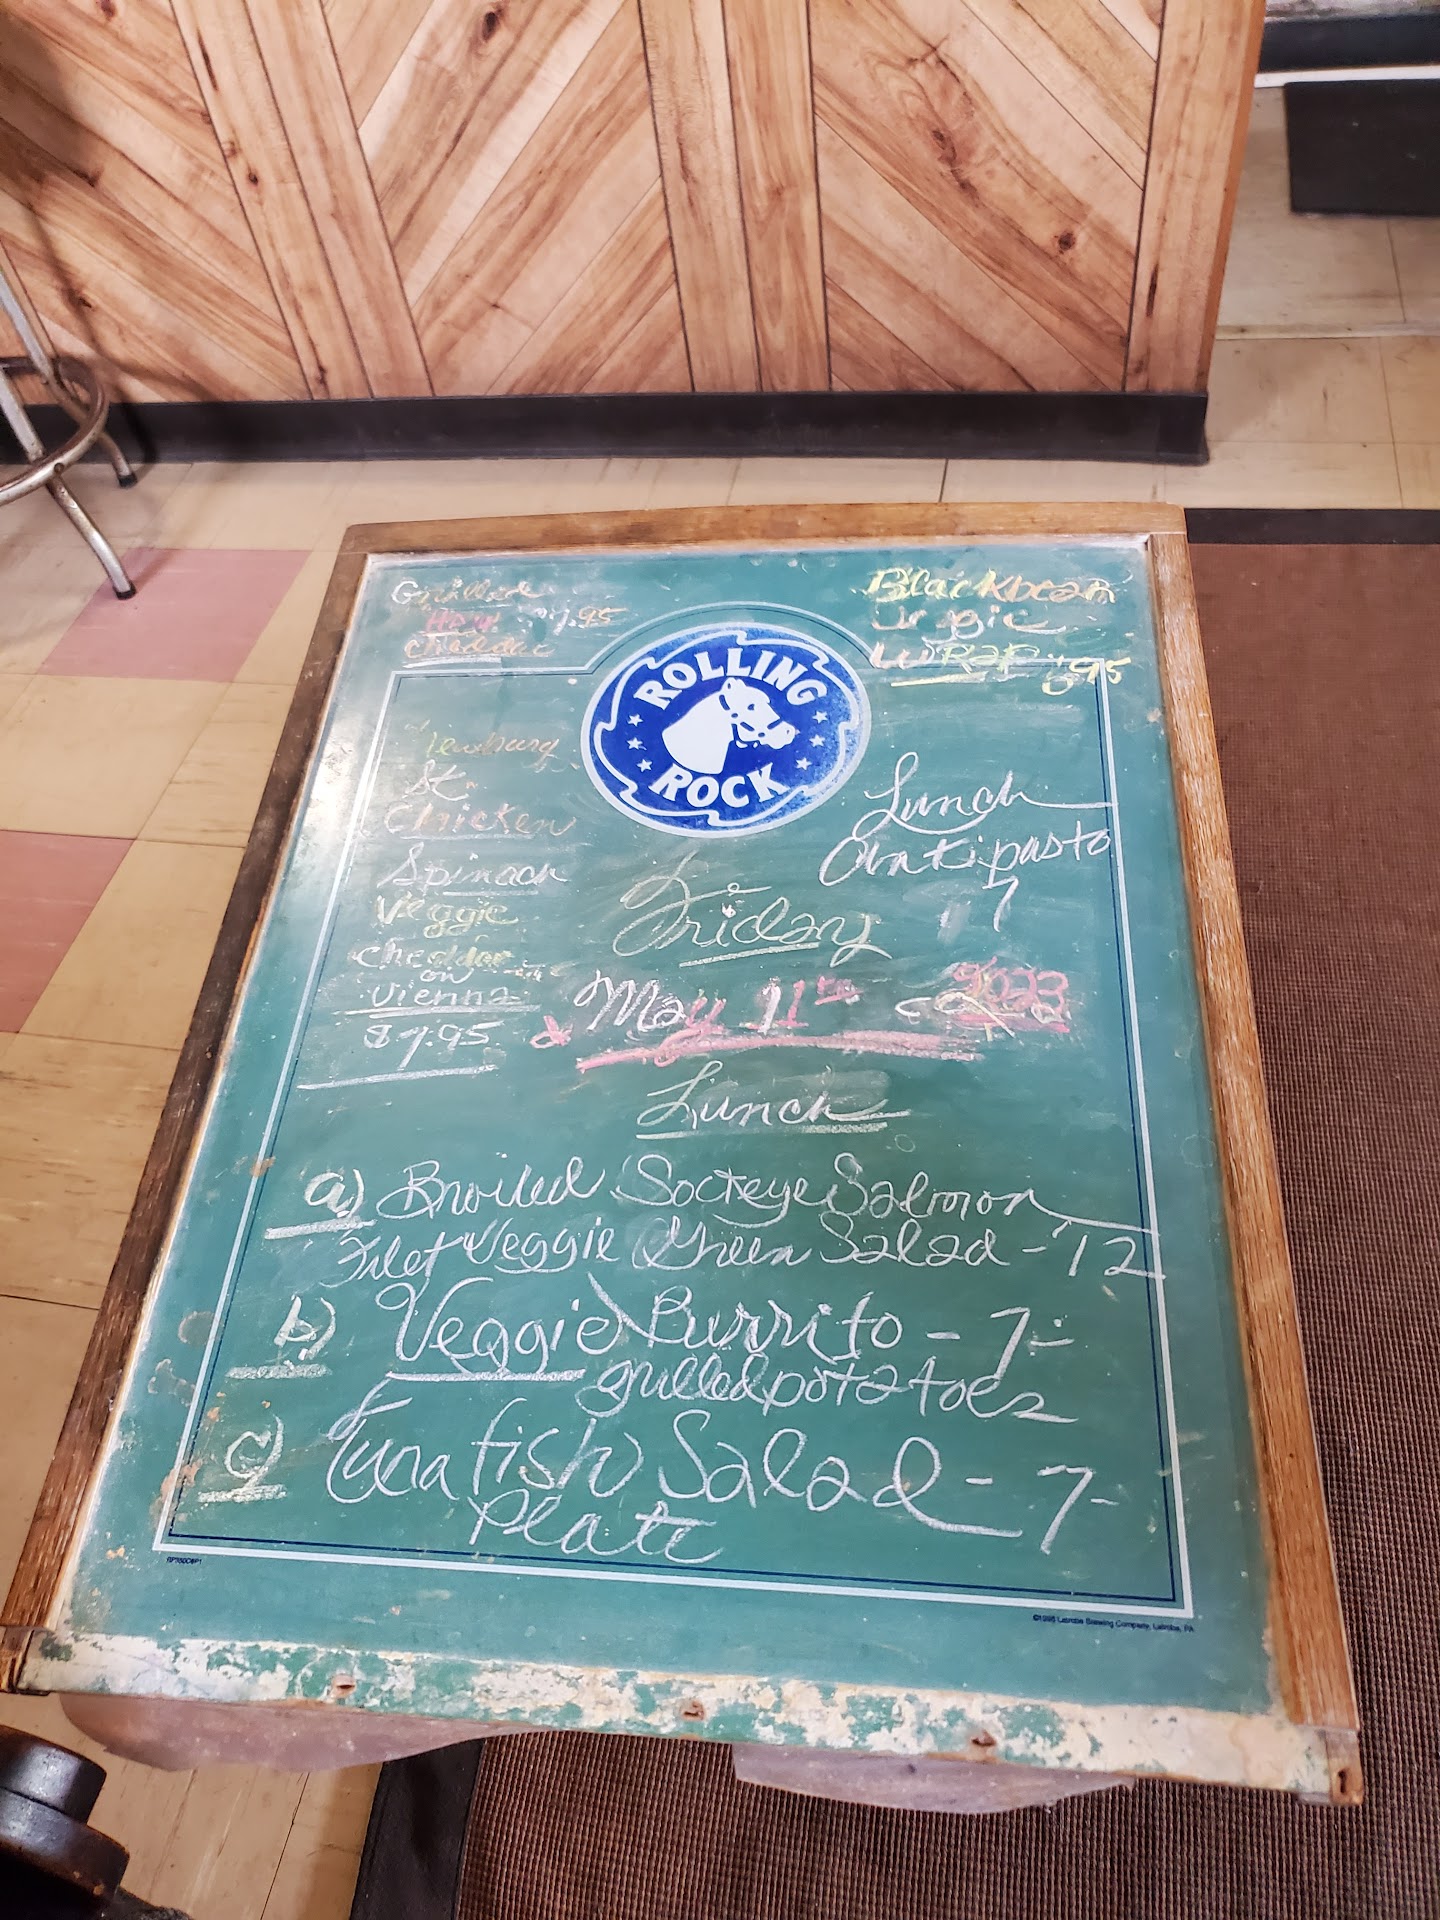 Grilled
Ham $7.95
cheddar
Blackbean
Veggie
Wrap $8.95
ROLLING
ROCK
Newburg
St.
Chicken
Spinach
Veggie
cheddar
on
Vienna
$7.95
Lunch
Antipasto
7
Friday
May 11th 2023
Lunch
a) Broiled Sockeye Salmon
Filet Veggie Green Salad - 12
b) Veggie Burrito - 7-
grilled potatoes
c) Tuna fish Salad - 7-
Plate
©1998 Latrobe Brewing Company, Latrobe, PA